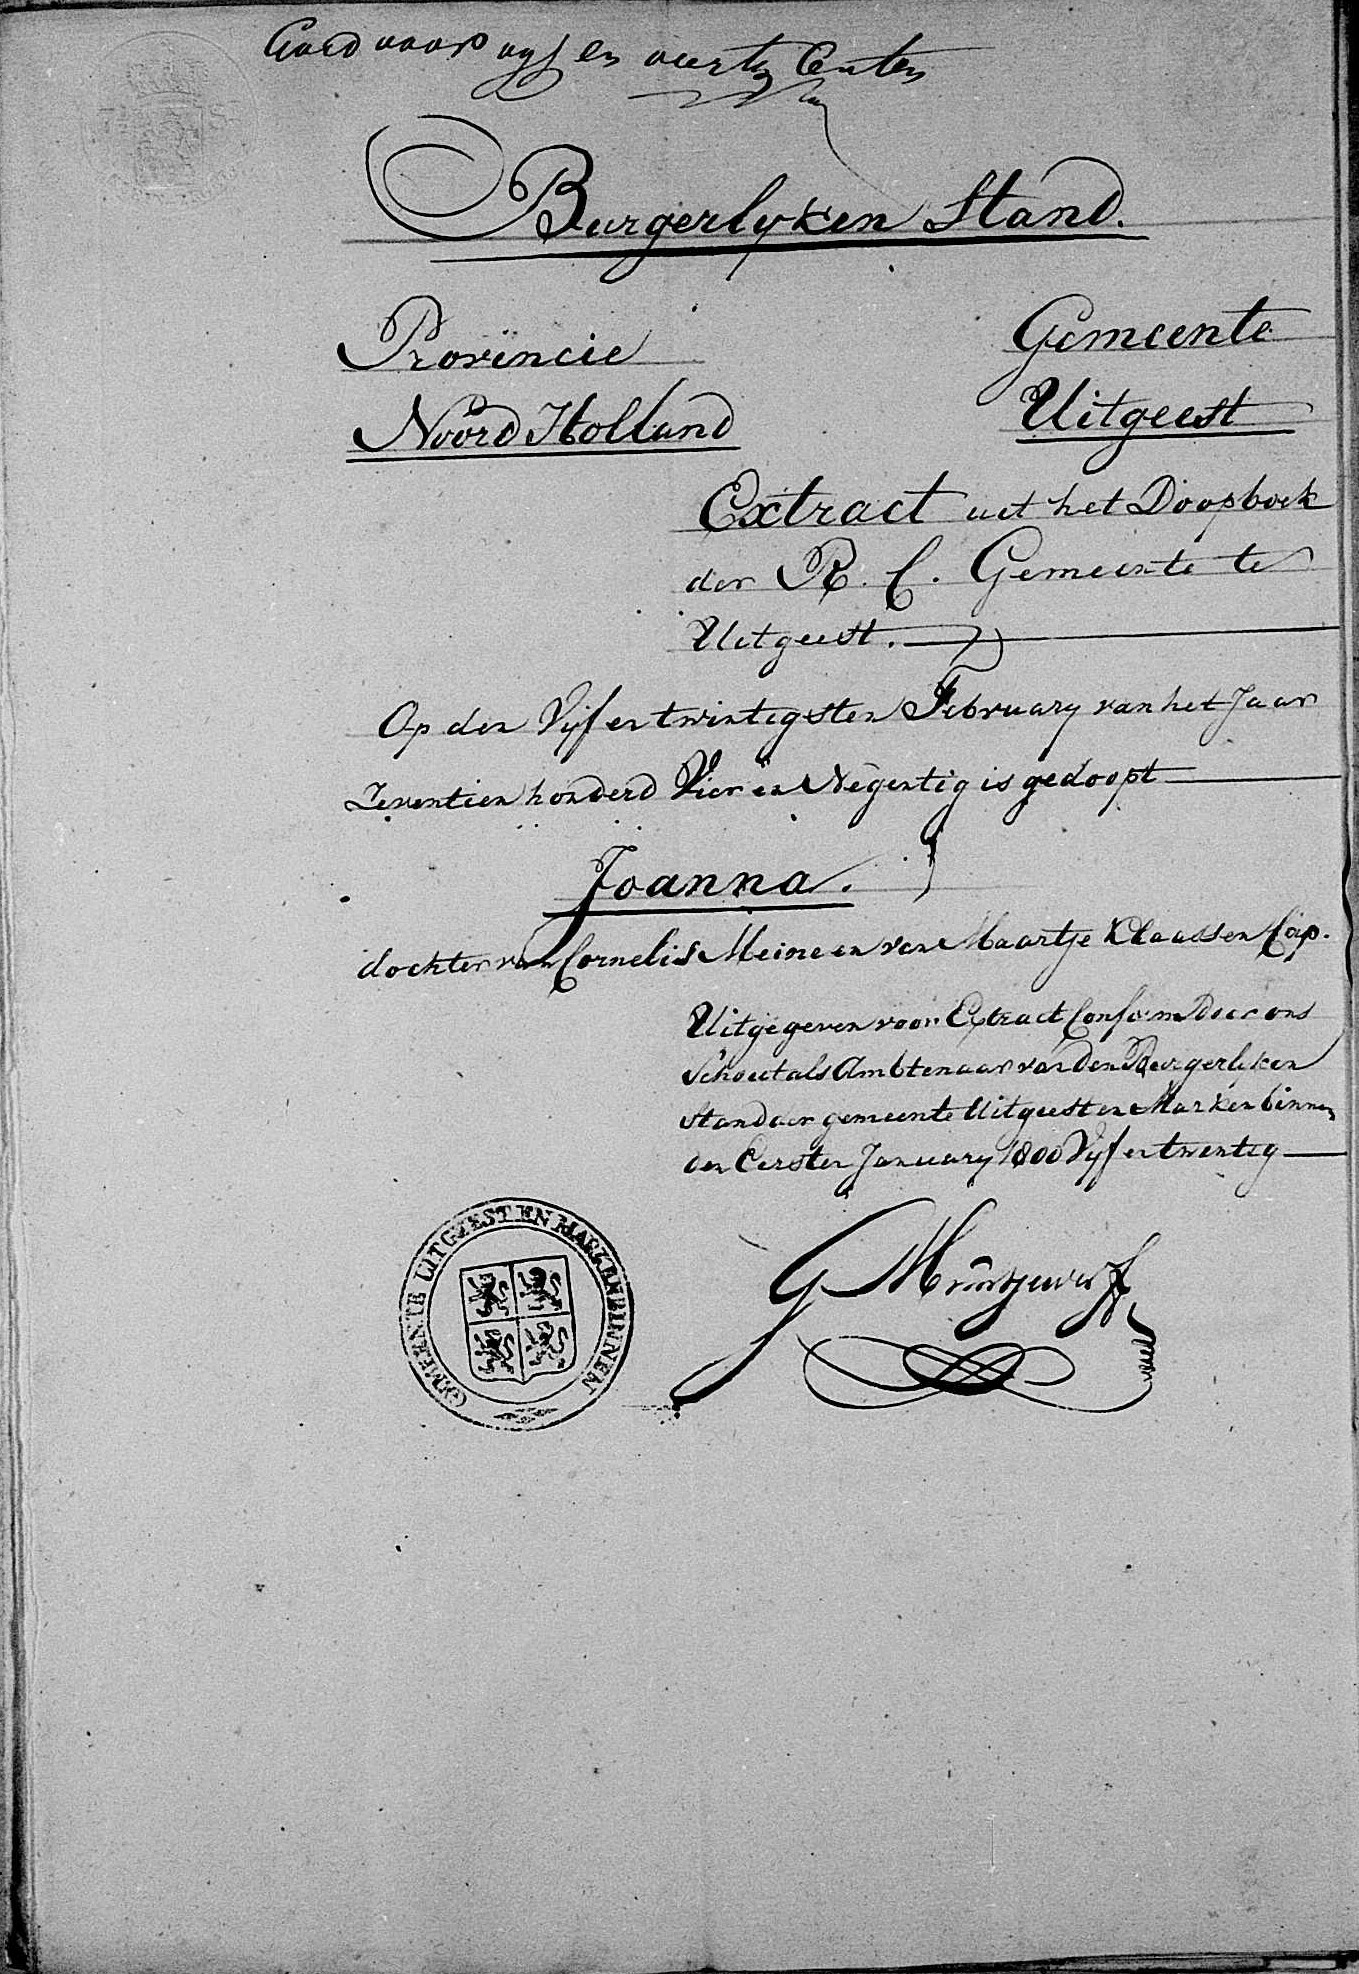 Goed voor vyf en veertig Centen
Burgerlyken Stand.
Provincie
Noord Holland
Gemeente
Uitgeest
Extract uit het Doopboek
der R. C. Gemeente te
Uitgeest.
Op den Vyf en twintigsten February van het Jaar
Zeventien honderd Vier en Negentig is gedoopt
Joanna.
dochter van Cornelis Meine en van Maartje Klaassen Cap.
Uitgegeven voor Extract Conform Door ons
Schout als Ambtenaar van den Burgerlyken
Stand der gemeente Uitgeest en Markenbinnen
den Eersten January 1800 Vyf en twentig
GEMEENTE UITGEEST EN MARKENBINNEN
G